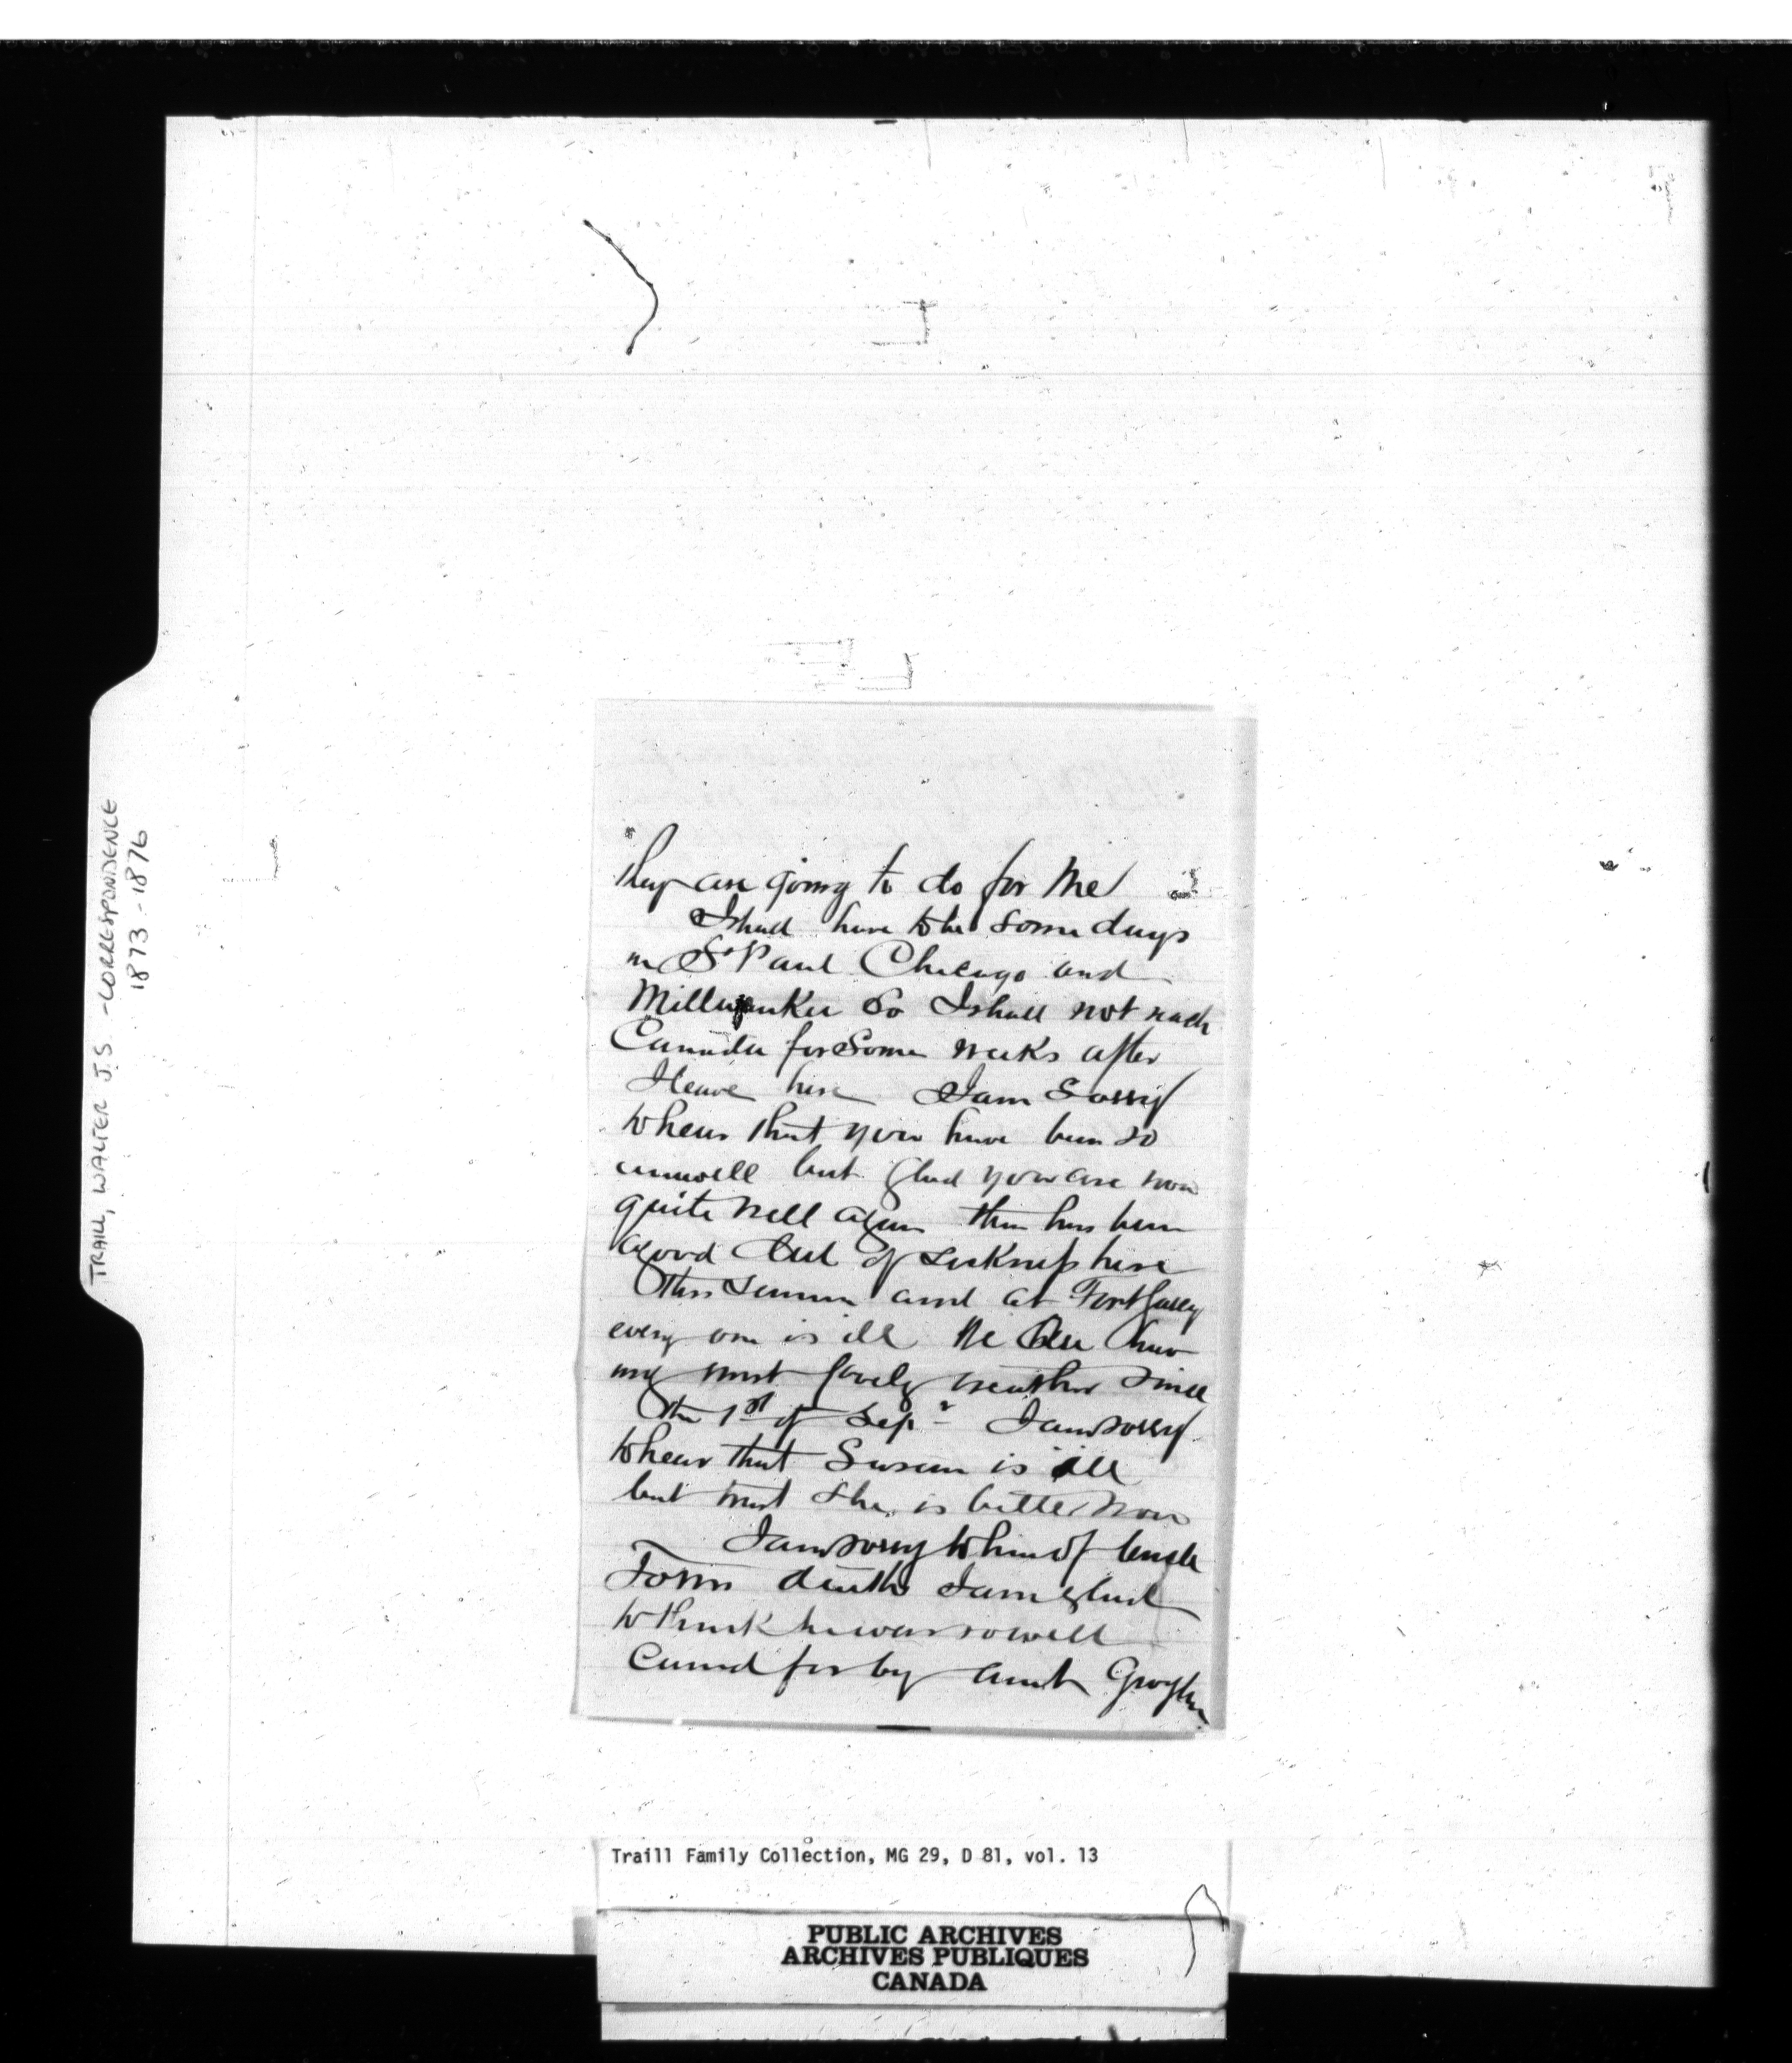 TRAILL, WALTER J.S. - CORRESPONDENCE
1873-1876
they are going to do for me
I shall have to be some days
in St Paul Chicago and
Millwaukee So I shall not reach
Canada for some weeks after
I leave here I am Sorry
to hear that you have been so
unwell but glad you are now
quite well again there has been
a good deal of sickness here
this summer and at Fort Garry
every one is ill We are hav
ing most lovely weather since
the 1st of Sepr I am sorry
to hear that Susan is ill
but trust she is better now
I am sorry to hear of Uncle
Toms death I am glad
to think he was so well
cared for by Aunt
Traill Family Collection, MG 29, D 81, vol. 13
PUBLIC ARCHIVES
ARCHIVES PUBLIQUES
CANADA